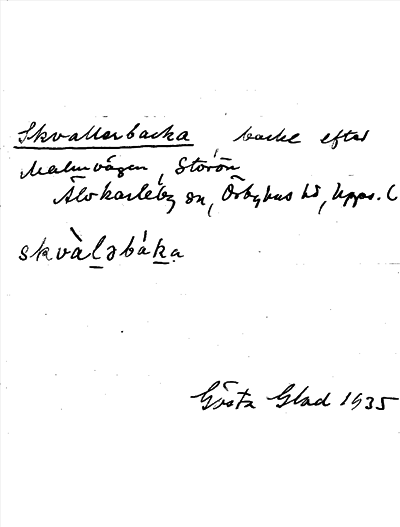 Skvallerbacka, backe efter
Malmvägen, Storön
Älvkarleby sn, Örbyhus hd, Upps. l
skvàl̲əbák̲a
Gösta Glad 1935